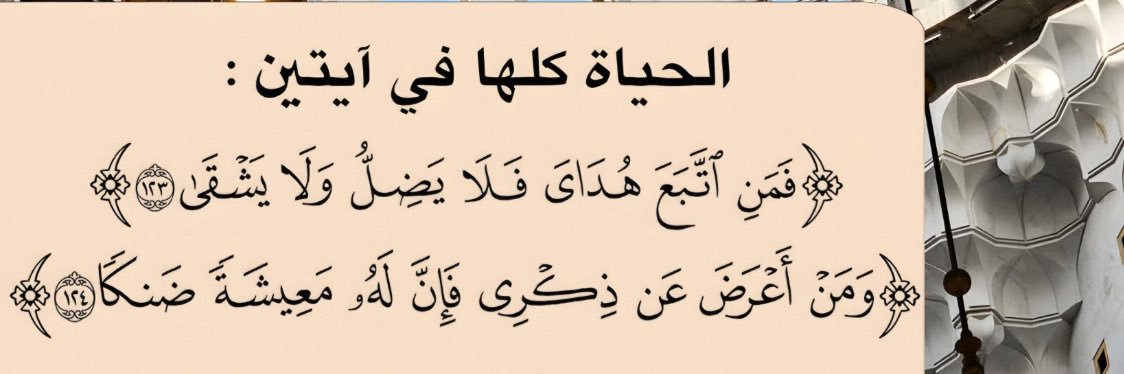 الحياة كلها في آيتين :
﴿فَمَنِ ٱتَّبَعَ هُدَاىَ فَلَا يَضِلُّ وَلَا يَشْقَىٰ ١٢٣﴾
﴿وَمَنْ أَعْرَضَ عَن ذِكْرِى فَإِنَّ لَهُۥ مَعِيشَةً ضَنكًا ١٢٤﴾